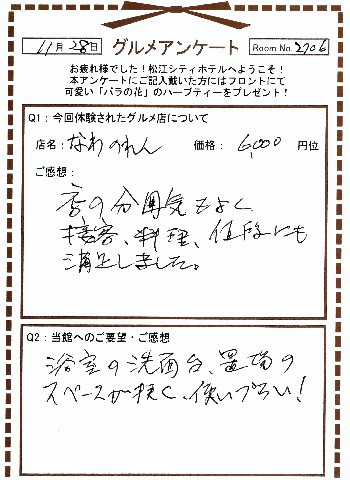 11月28日 グルメアンケート Room No. 2706
お疲れ様でした！松江シティホテルへようこそ！
本アンケートにご記入戴いた方にはフロントにて
可愛い「バラの花」のハーブティーをプレゼント！
Q1：今回体験されたグルメ店について
店名：なわのれん 価格： 6,000 円位
ご感想：
店の分囲気もよく
接客、料理、値段にも
満足しました。
Q2：当館へのご要望・ご感想
浴室の洗面台、置場の
スペースが狭く、使いづらい！